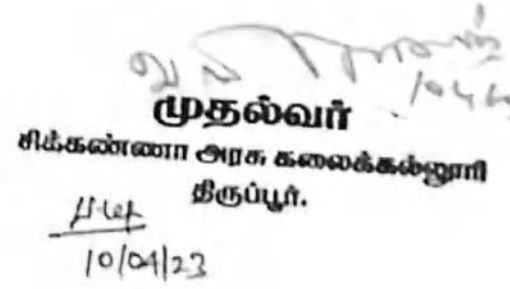 முதல்வர்
சிக்கண்ணா அரசு கலைக்கல்லூரி
திருப்பூர்.
10/04/23